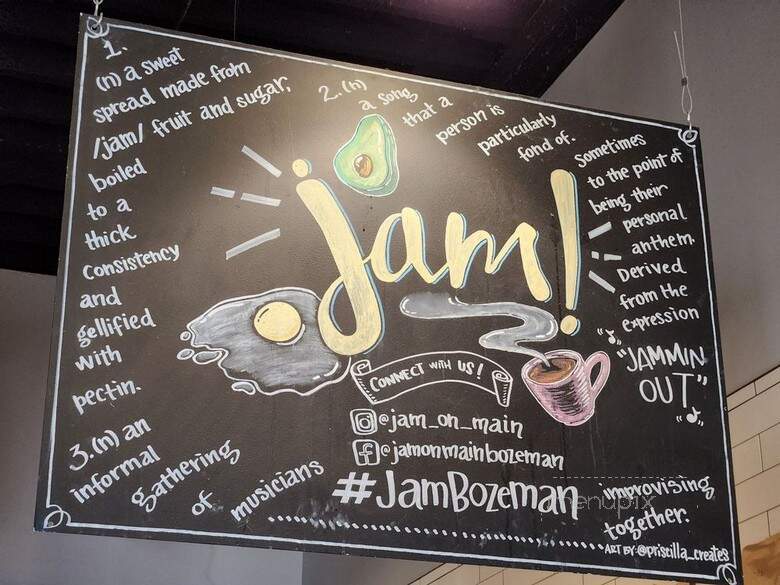 1.
(n) a sweet
spread made from
/jam/ fruit and sugar,
boiled
to a
thick
consistency
and
gellified
with
pectin.
2. (n)
a song
that a
person is
particularly
fond of.
Sometimes
to the point of
being their
personal
anthem.
Derived
from the
expression
"JAMMIN
OUT"
jam!
CONNECT WITH US!
@jam_on_main
@jamonmainbozeman
#JamBozeman
3. (n) an
informal
gathering
of
musicians
improvising
together.
ART BY: @priscilla_creates
menupix